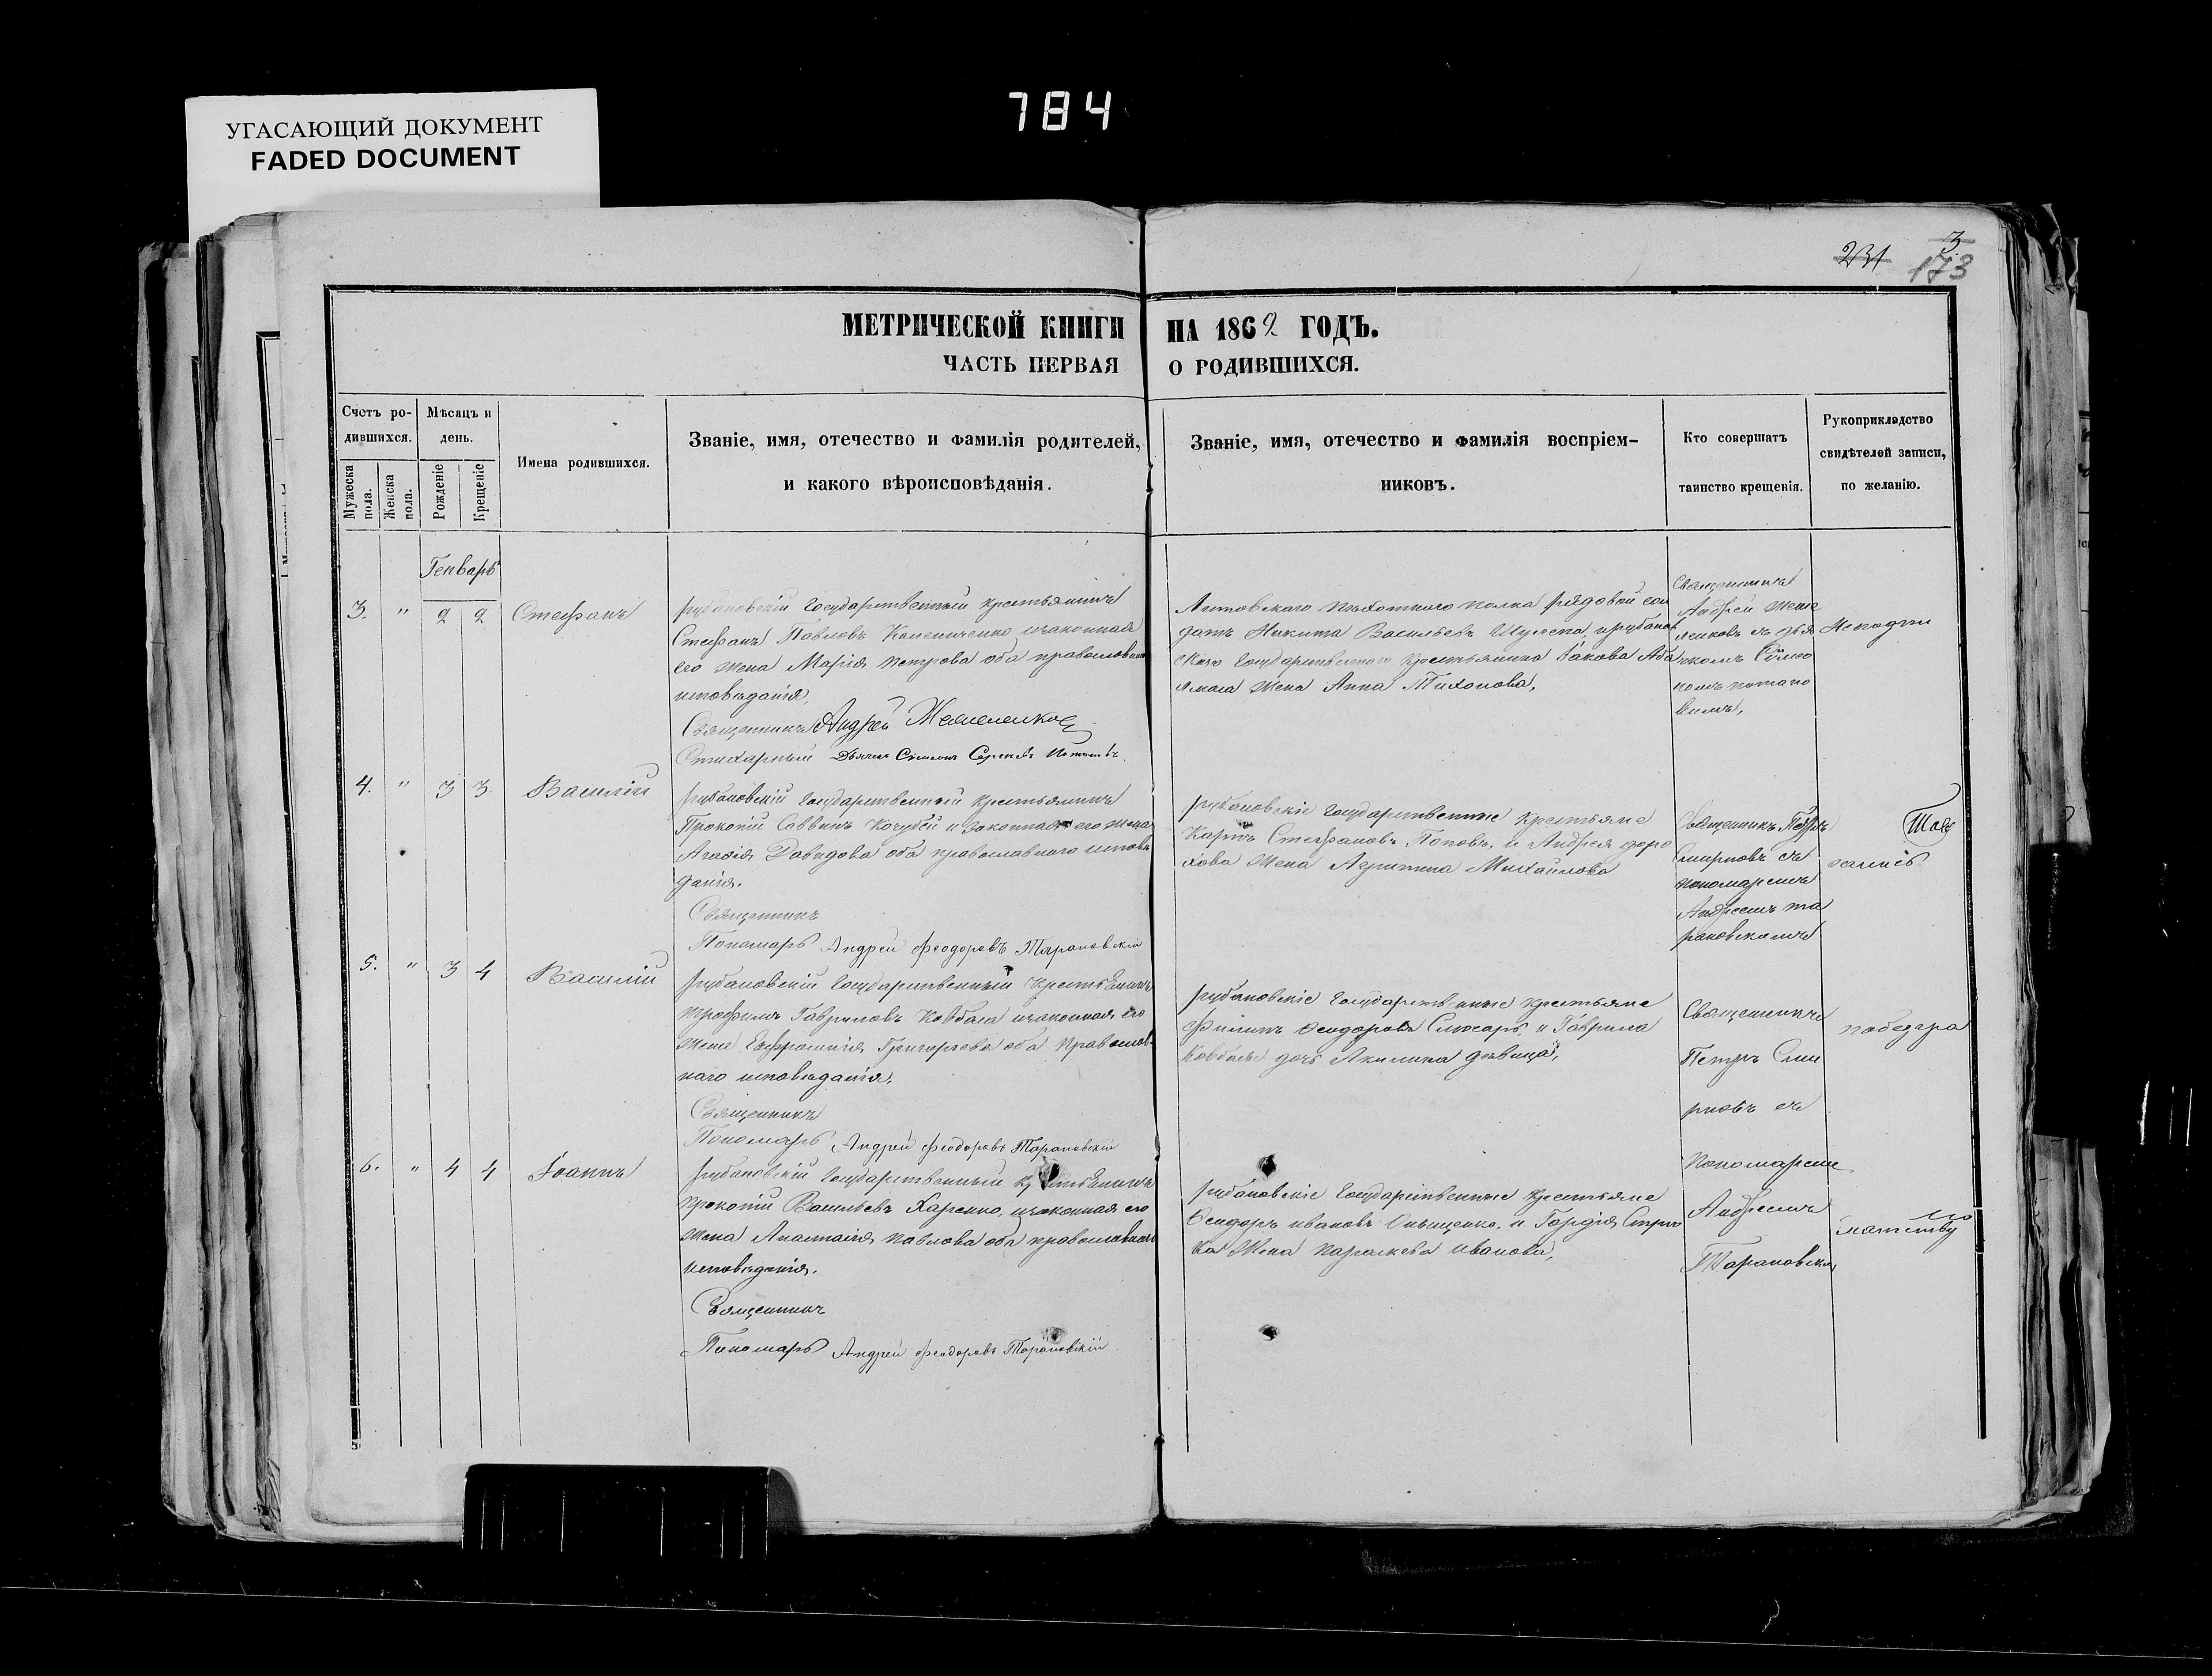 УГАСАЮЩИЙ ДОКУМЕНТ
FADED DOCUMENT
784
231
3
173
МЕТРИЧЕСКОЙ КНИГИ НА 1862 ГОДЪ.
ЧАСТЬ ПЕРВАЯ О РОДИВШИХСЯ.
Счетъ ро-
дившихся.
Мужеска
пола.
Женска
пола.
Мѣсяцъ и
день.
Рожденіе
Крещеніе
Имена родившихся.
Званіе, имя, отечество и фамилія родителей,
и какого вѣроисповѣданія.
Званіе, имя, отечество и фамилія воспріем-
никовъ.
Кто совершатъ
таинство крещенія.
Рукоприкладство
свидѣтелей записи,
по желанію.
Генварь
3. " 2 2 Стефанъ
рубановскій Государственный крестьянинъ
Стефанъ Павловъ изаконная
его жена Марія петрова оба православнаго
исповѣданія,
Священникъ Андрей
Стихарный Дьячекъ Симеонъ
пѣхотнаго полка рядовой сол
датъ Никита Васильевъ
Государственнаго крестьянина Іакова
жена Анна Тихонова,
Священникъ
Андрей
4. " 3 3 Василій
рубановскій Государственный крестьянинъ
Прокопій Саввинъ Кочубей и законная его жена
Агафія Давидова оба православнаго исповѣ
данія.
Священникъ
Пономарь Андрей Феодоровъ Тарановскій
рубановскіе Государственные крестьяне
Карпъ Стефановъ Поповъ, и Андрея
жена Агрипина Михайлова
Священникъ Петръ
Смирновъ съ
пономаремъ
Андреемъ Та
рановскимъ
5. " 3 4 Василій
рубановскій Государственный крестьянинъ
трофимъ Гавриловъ Ковбаса изаконная его
жена Евфросинія Григорьева оба православ-
наго исповѣданія.
Священникъ
Пономарь Андрей Феодоровъ Тарановскій
рубановскіе Государственные крестьяне
Филипъ Феодоровъ Слюсарь и Гаврила
Ковбасы дочь Акилина дѣвица,
Священникъ
Петръ Сми
рновъ съ
пономаремъ
Андреемъ
Тарановским
6. " 4 4 Іоаннъ
рубановскій Государственный крестьянинъ
прокопій Васильевъ Харенко, изаконная его
жена Анастасія павлова оба православнаго
исповѣданія.
Священникъ
Пономарь Андрей Феодоровъ Тарановскій
рубановскіе Государственные крестьяне
Феодоръ ивановъ Онищенко, и Гордія
жена параскева иванова,